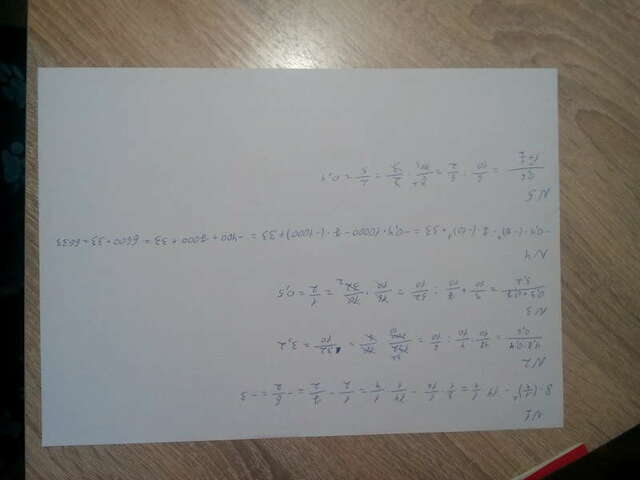 N1
8 · (1/4)² - 14 · 1/4 = 8/1 · 1/16 - 14/1 · 1/4 = 1/2 - 7/2 = - 6/2 = -3
N2
4,8·0,4/0,6 = 48/10 · 4/10 : 6/10 = 192/100 · 10/6 = 32/10 = 3,2
N3
0,9+0,7/3,2 = 9/10 + 7/10 : 32/10 = 16/10 · 10/32 = 1/2 = 0,5
N4
-0,4·(-10)⁴ - 7·(-10)³ + 33 = -0,4·10000 - 7·(-1000) + 33 = -400 + 7000 + 33 = 6600 + 33 = 6633
N5
0,6/1+1/2 = 6/10 : 3/2 = 2/5 = 0,4